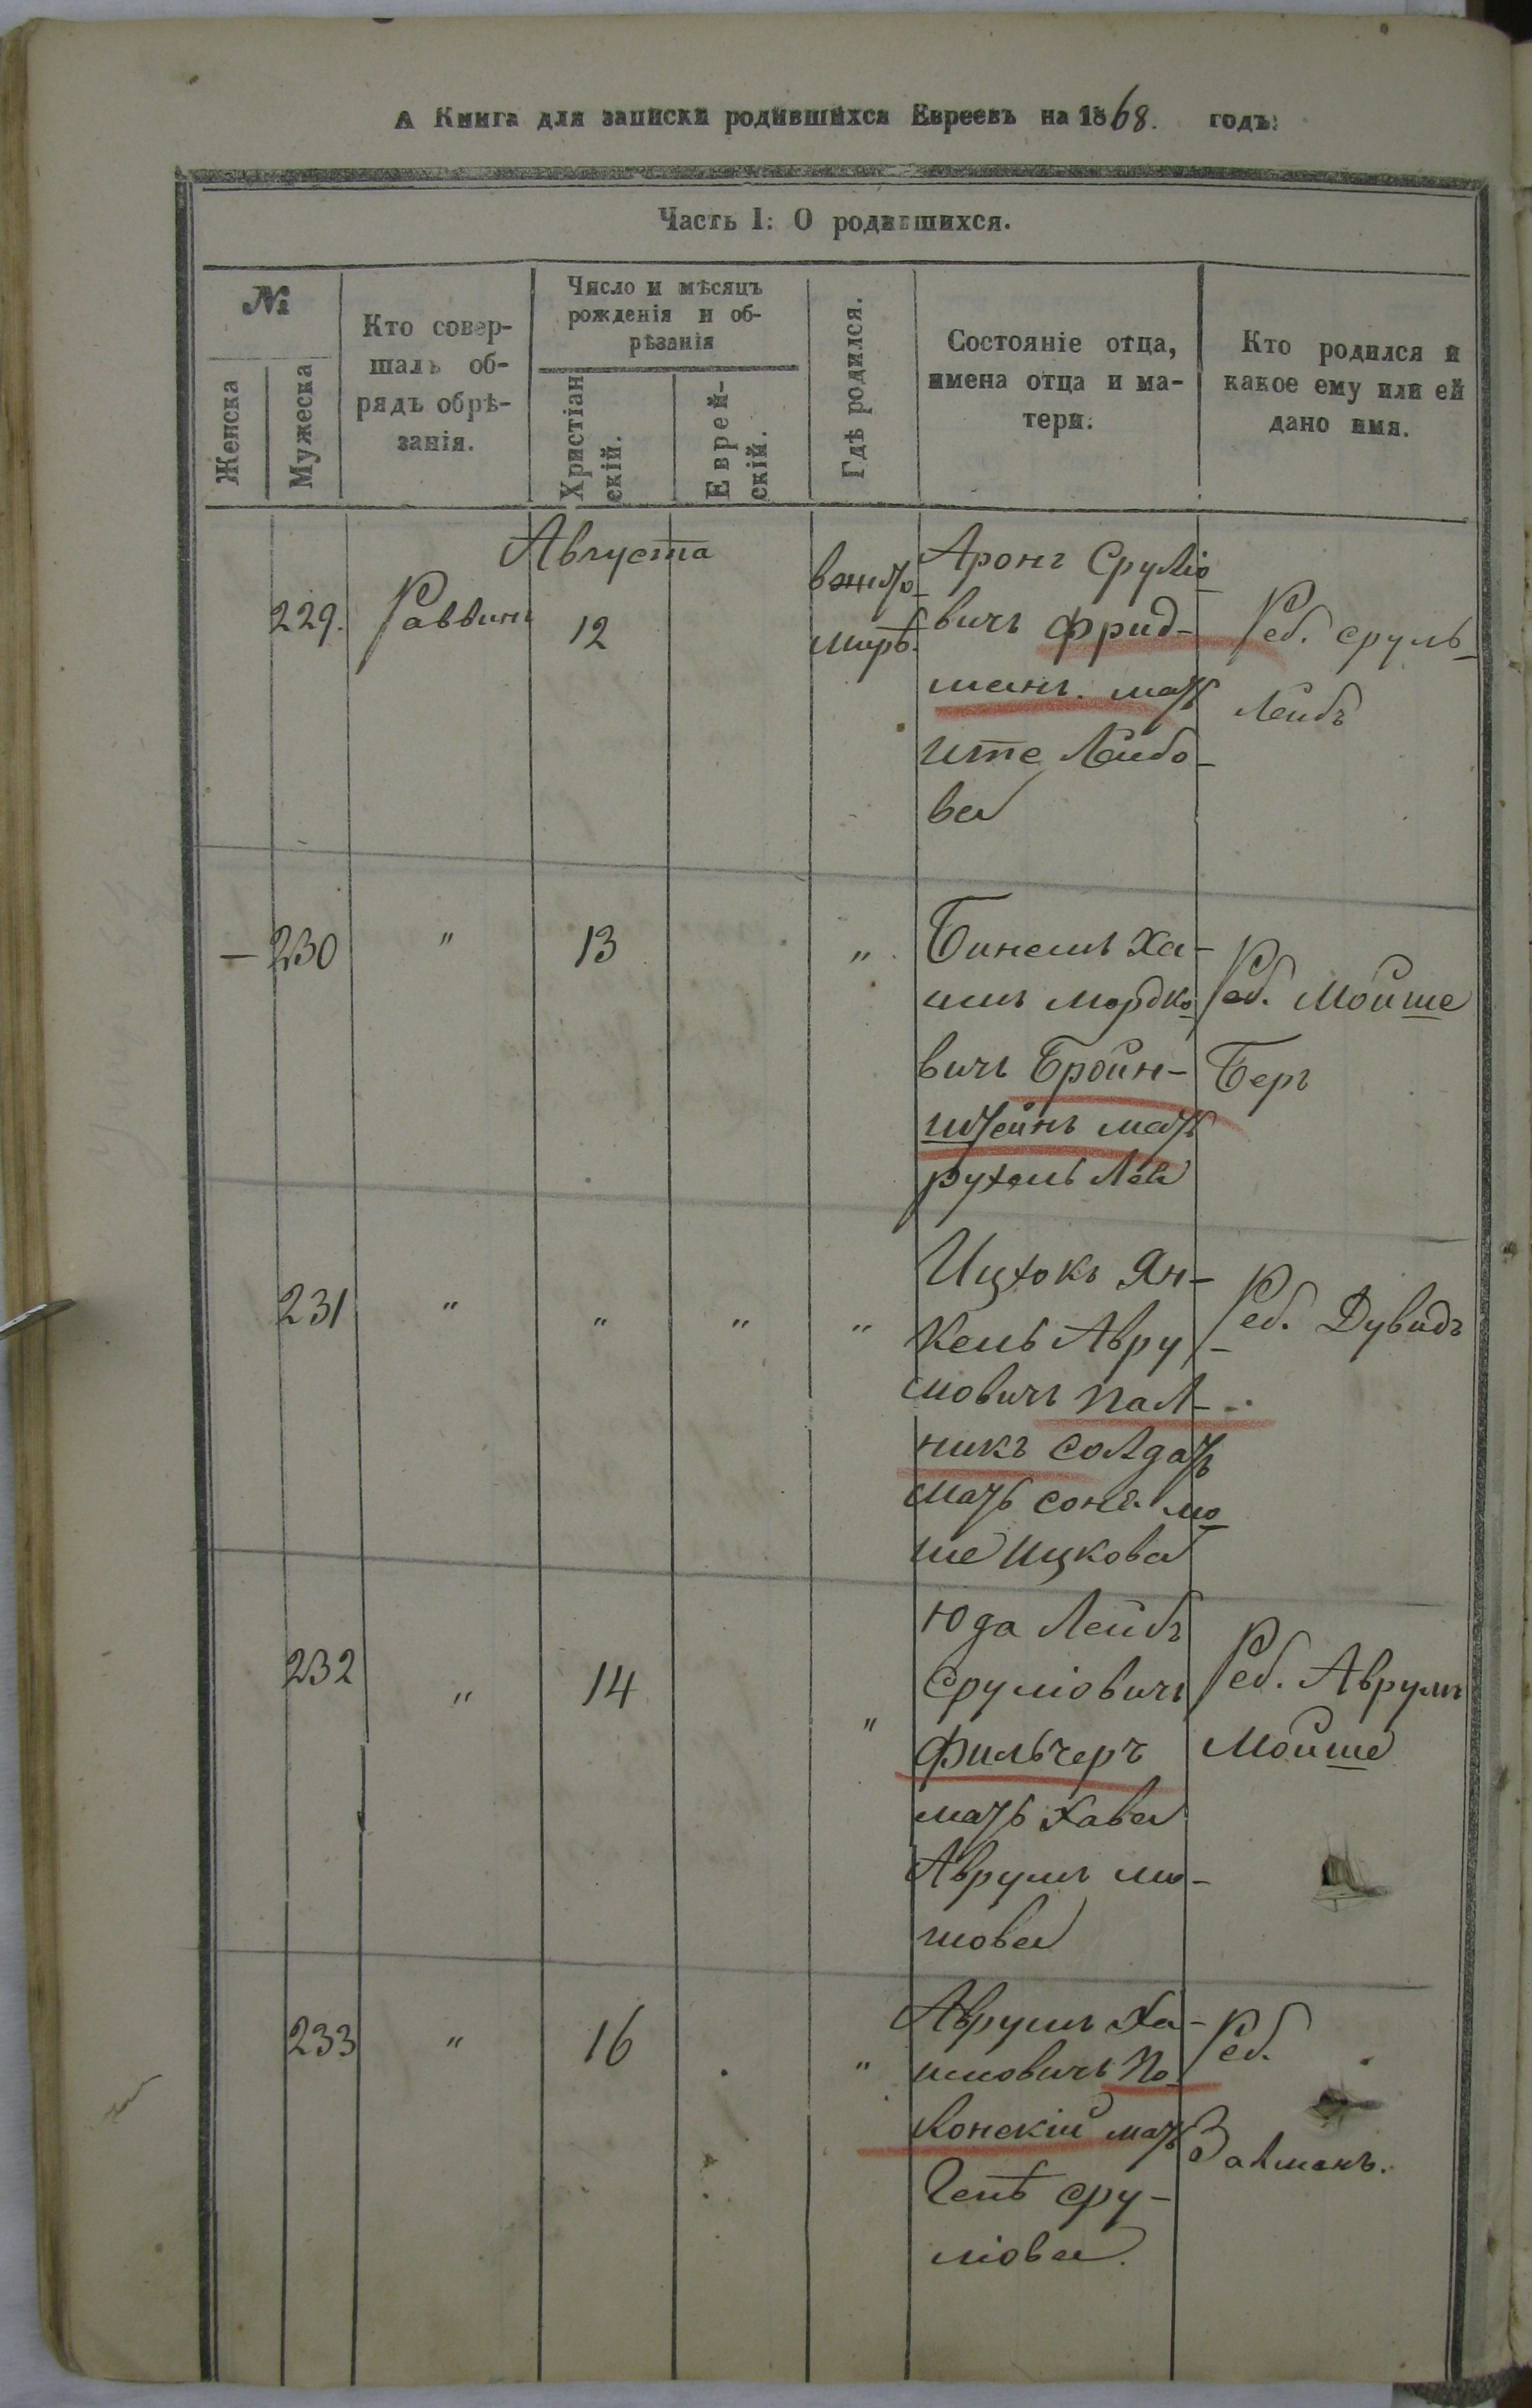 А Книга для записки родившихся Евреевъ на 1868. годъ:
Часть I: О родившихся.
№
Женска
Мужеска
Кто совер-
шалъ об-
рядъ обрѣ-
занія.
Число и мѣсяцъ
рожденія и об-
рѣзанія
Христіан
скій.
Еврей-
скій.
Гдѣ родился.
Состояніе отца,
имена отца и ма-
тери.
Кто родился и
какое ему или ей
дано имя.
Августа
229.
Раввинъ
12
вжито-
мирѣ.
Аронъ Срулiо-
вичъ Фрид-
манъ. мать
Ите Лейбо-
ва
Реб. Сруль-
Лейбъ
230
"
13
"
Бинемъ Ха-
имъ Мордко-
вичъ Бройн-
штейнъ мать
рухель Леа
Реб. Мойше
Беръ
231
"
"
"
"
Ицхокъ Ян-
кель Авру-
мовичъ Пал-
никъ солдатъ
мать Соня мо-
ше Ицкова
Реб. Дувидъ
232
"
14
"
Юда Лейбъ
Сруліовичъ
Фильчеръ
мать Хава
Аврумъ мо-
шова
Реб. Аврумъ
Мойше
233
"
16
"
Аврумъ Ха-
имовичъ По-
лонскій мать
Геня Сру-
ліова.
Реб.
Залманъ.